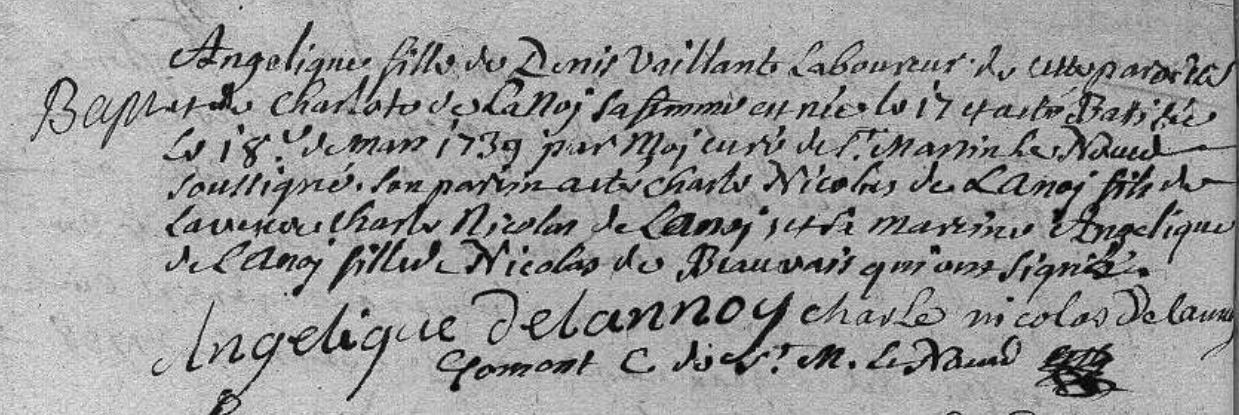 Angelique fille de Denis Vaillant Laboureur de cette paroisse
Bapt et de Charlote de Lanoj sa femme est née le 17 et a eté Batisée
Le 18.e de Mars 1739 par Moj curé de St. Martin Le Noeud
soussigné. son parin a eté Charle Nicolas de Lanoj fils de
La veuve Charle Nicolas de Lanoj, et sa marine Angelique
de Lanoj fille de Nicolas de Beauvais qui ont signé.
Angelique Delannoy charle nicolas Delannoy
Gomont C. de St. M. Le Noeud